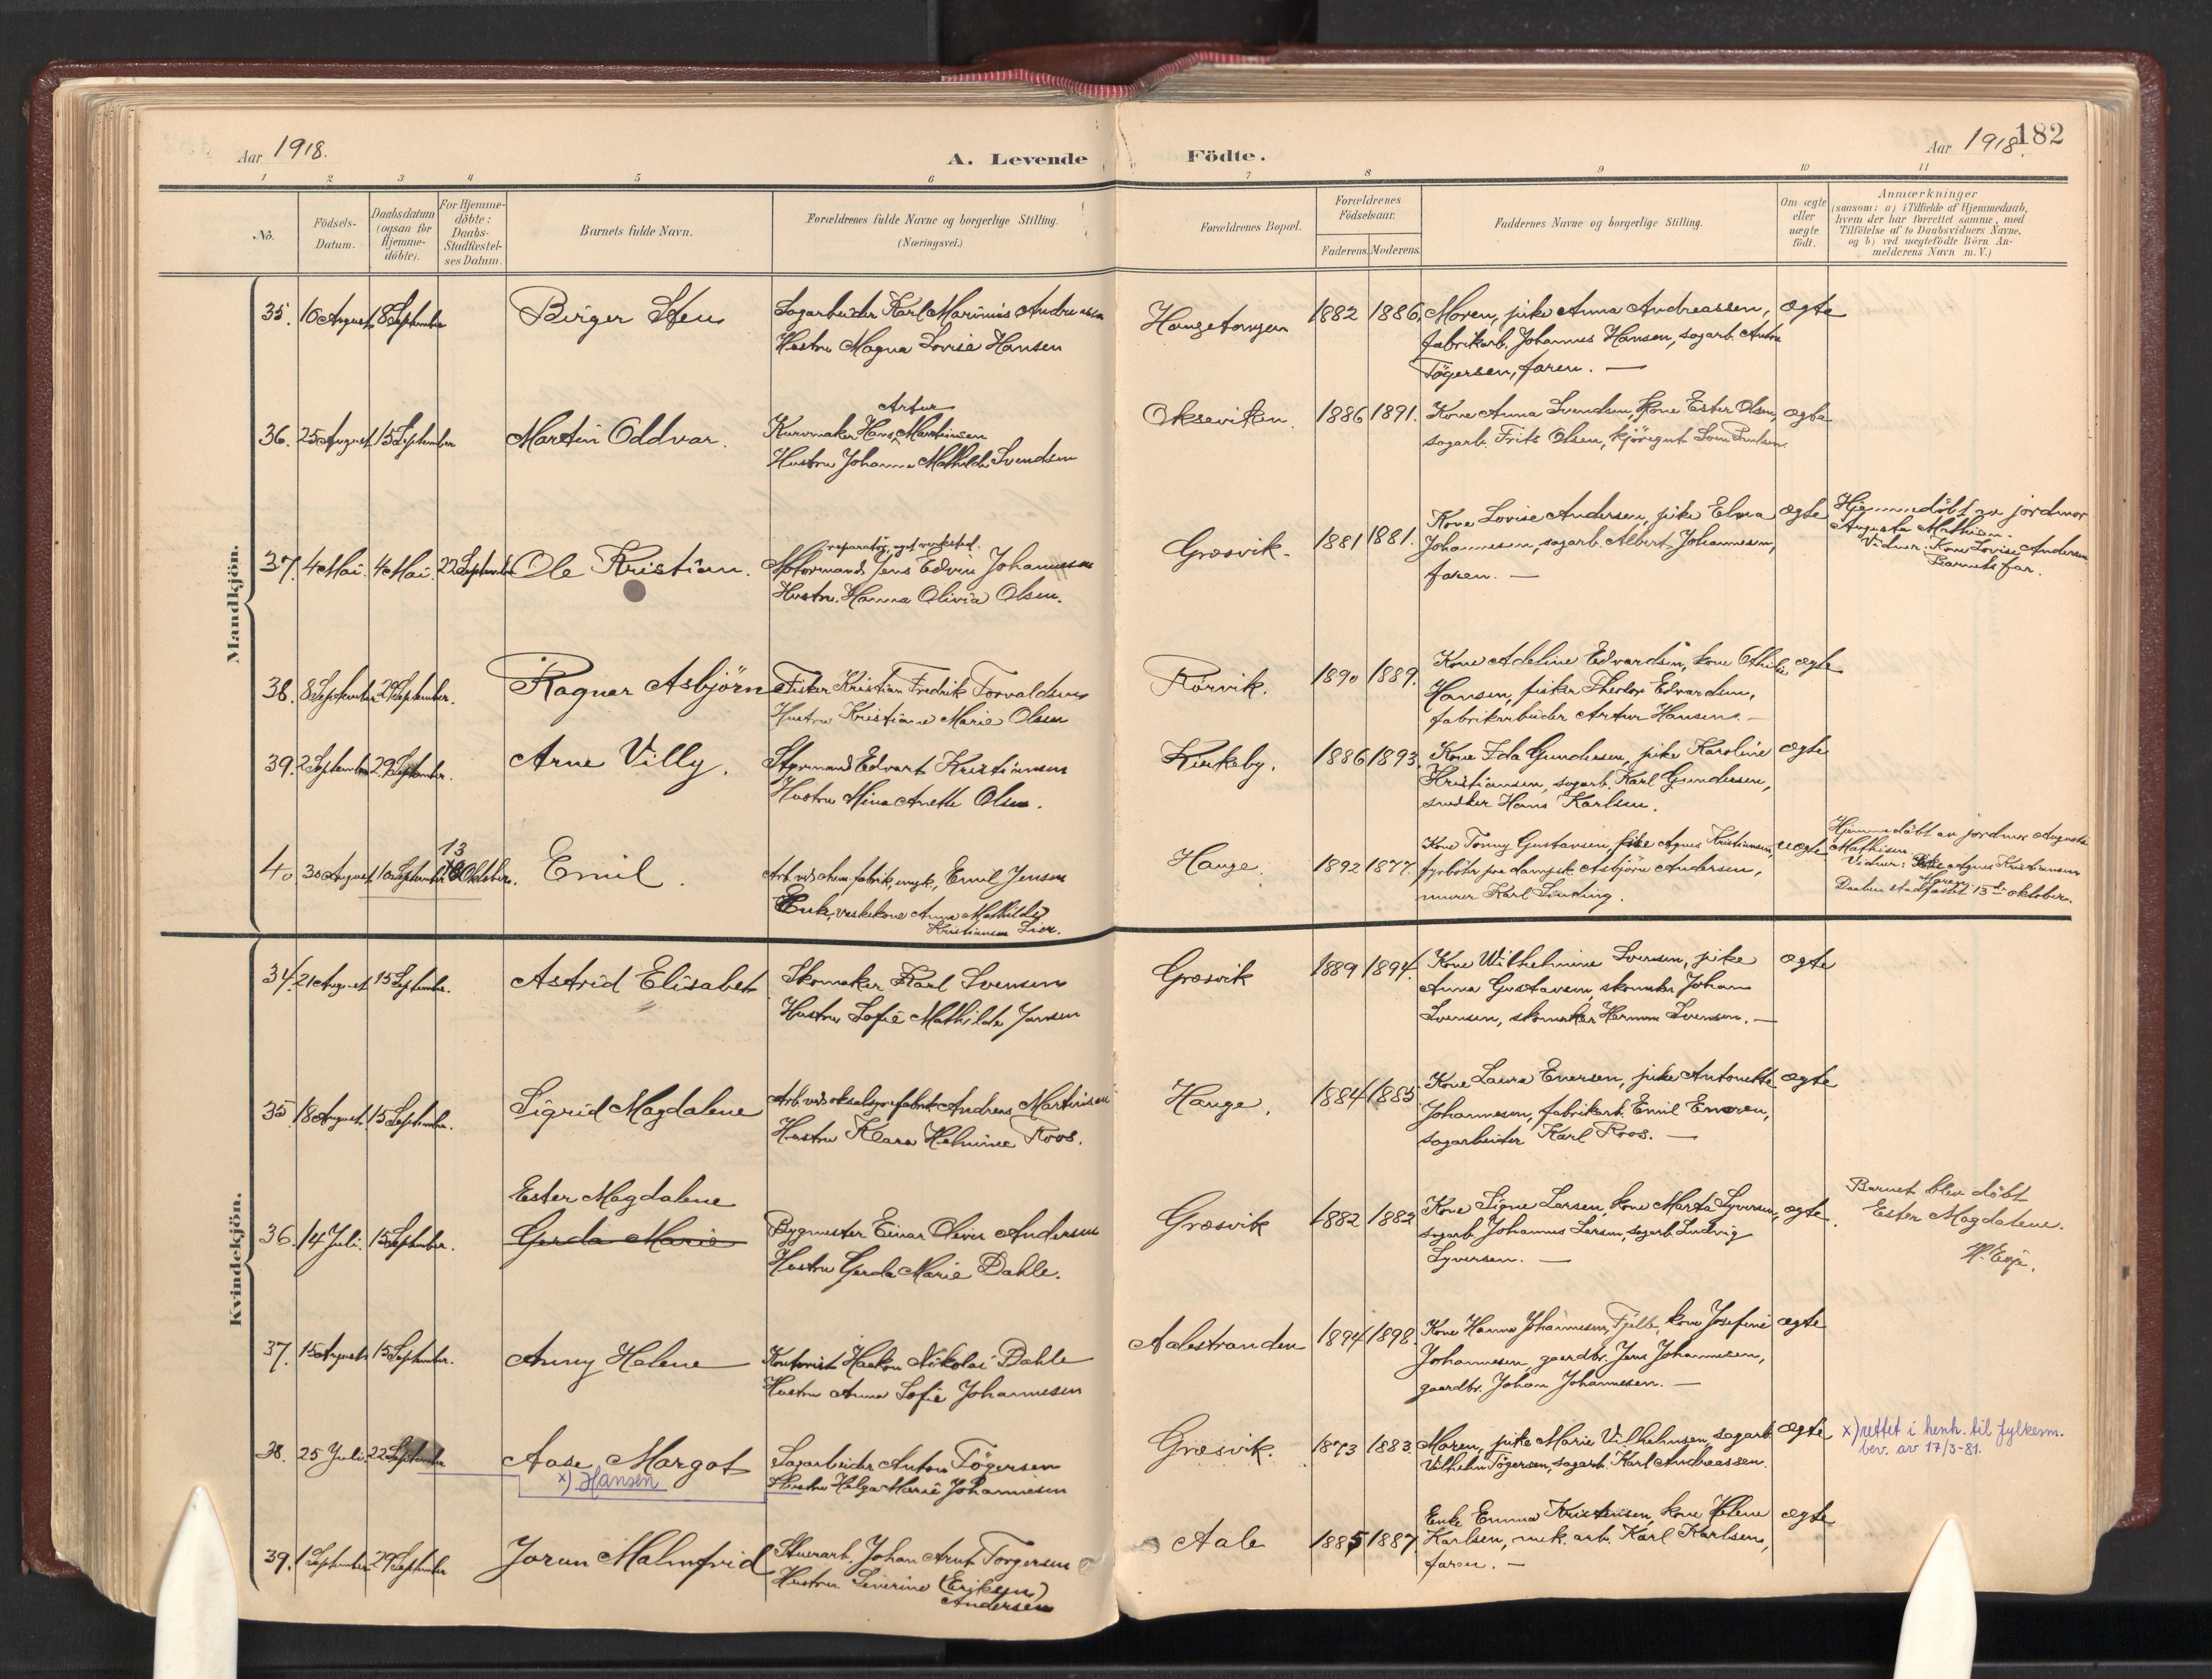 Aar 1918.
A. Levende Födte.
Aar 1918.
182
1 2 3 4 5 6 7 8 9 10 11
No.
Födsels-
Datum.
Daabsdatum
(ogsaa for
Hjemme-
döbte).
For Hjemme-
döbte:
Daabs-
Stadfæstel-
ses Datum.
Barnets fulde Navn.
Forældrenes fulde Navne og borgerlige Stilling.
(Næringsvei.)
Forældrenes Bopæl.
Forældrenes
Födselsaar.
Faderens. Moderens.
Faddernes Navne og borgerlige Stilling.
Om ægte
eller
uægte
født.
Anmærkninger
(saasom: a) i Tilfælde af Hjemmedaab,
hvem der har forrettet samme, med
Tilföielse af to Daabsvidners Navne,
og b) ved uægtefödte Börn An-
melderens Navn m.V.)
Mandkjön.
35. 10 August 8 September Birger Sten
Sagarbeider Karl Marinius Andreassen
Hustru Magna Lovise Hansen
Haugetangen 1882 1886.
Moren, pike Anna Andreassen,
fabrikarb. Johannes Hansen, sagarb. Anton
Tögersen, faren. —
ægte
36. 25 August 15 September Martin Oddvar.
Artur
Kurvmaker Hans Martinsen
Hustru Johanne Mathilde Svendsen
Okseviken. 1886 1891.
Kone Anna Svendsen, kone Ester Olsen,
sagarb. Frits Olsen, kjöregut
ægte
37. 4 Mai. 4 Mai. 22 September Ole Kristian.
reparatör, eget verksted.
Motormand Jens Edvin Johannesen
Hustru. Hanna Olivia Olsen.
Græsvik 1881 1881.
Kone Lovise Andersen, pike Elna
Johannesen, sagarb. Albert Johannesen,
faren. —
ægte
Hjemmedöbt av jordmor
Augusta Mathisen.
Vidner: Kone Lovise Andersen
Barnets far.
38. 8 September 29 September. Ragnar Asbjörn
Fisker Kristian Fredrik Torvaldsen
Hustru Kristiane Marie Olsen
Rörvik. 1890 1889.
Kone Adeline Edvardsen, kone Othilie
Hansen, fisker Theodor Edvardsen,
fabrikarbeider Artur Hansen. —
ægte
39. 2 September 29 September. Arne Villy.
Styrmand Edvart Kristiansen
Hustru Mina Anette Olsen.
Kirkeby. 1886 1893.
Kone Ida Gundersen, pike Karoline
Kristiansen, sagarb. Karl Gundersen,
snedker Hans Karlsen.
ægte
40. 30 August 10 September 13 Oktober. Emil.
Arb. ved chem. fabrik, ungk., Emil Jensen
Enke, vaskekone Anna Mathilde
Kristiansen Lier.
Hauge. 1892 1877.
Kone Tonny Gustavsen, pike Agnes Kristiansen,
fyrböter paa dampsk. Asbjörn Andersen,
murer Karl Sinding.
uægte
Hjemmedöbt av jordmor Augusta
Mathisen.
Vidner: Pike Agnes Kristiansen
Moren.
Daaben stadfæstet 13de oktober.
Kvindekjön.
34. 21 August 15 September. Astrid Elisabet
Skomaker Karl Svensen
Hustru Sofie Mathilde Jansen
Græsvik 1889 1894.
Kone Wilhelmine Svensen, pike
Anna Gustavsen, skomaker Johan
Svensen, skomaker Herman Svensen. —
ægte
35. 18 August 15 September. Sigrid Magdalene
Arb. ved oksalsyrefabrik Andreas Martinsen
Hustru Klara Helmine Roos.
Hauge. 1884 1885
Kone Laura Enersen, pike Antonette
Johannesen, fabrikarb. Emil Enersen,
sagarbeider Karl Roos. —
ægte
Ester Magdalene
36. 14 Juli. 15 September. Gerda Marie
Bygmester Einar Oliver Andersen
Hustru Gerda Marie Dahle.
Græsvik 1882 1882
Kone Signe Larsen, kone Marta Syversen,
sagarb. Johannes Larsen, sagarb. Ludvig
Syversen. —
ægte.
Barnet blev döbt
Ester Magdalene.
H. Evje.
37. 15 August 15 September. Anny Helene
Kontorist Haakon Nikolai Dahle
Hustru Anna Sofie Johannesen
Aalestranden 1894 1898.
Kone Hanna Johannesen, Fjelle, kone Josefine
Johannesen, gaardbr. Jens Johannesen,
gaardbr. Johan Johannesen. —
ægte
38. 25 Juli. 22 September Aase Margot
x) Hansen
Sagarbeider Anton Tögersen
Hustru Helga Marie Johannesen
Græsvik. 1873 1883.
Moren, pike Marie Vilhelmsen, sagarb.
Vilhelm Tögersen, sagarb. Karl Andreassen.
ægte
x) rettet i henh. til fylkesm.
bev. av 17/3-81.
39. 1 September 29 September Jorun Malmfrid
Stuerarb. Johan Arnt Torgersen
Hustru Severine (Eriksen)
Andersen
Aale 1885 1887.
Enke Emma Kristensen, kone Helene
Karlsen, mek. arb. Karl Karlsen,
faren. —
ægte